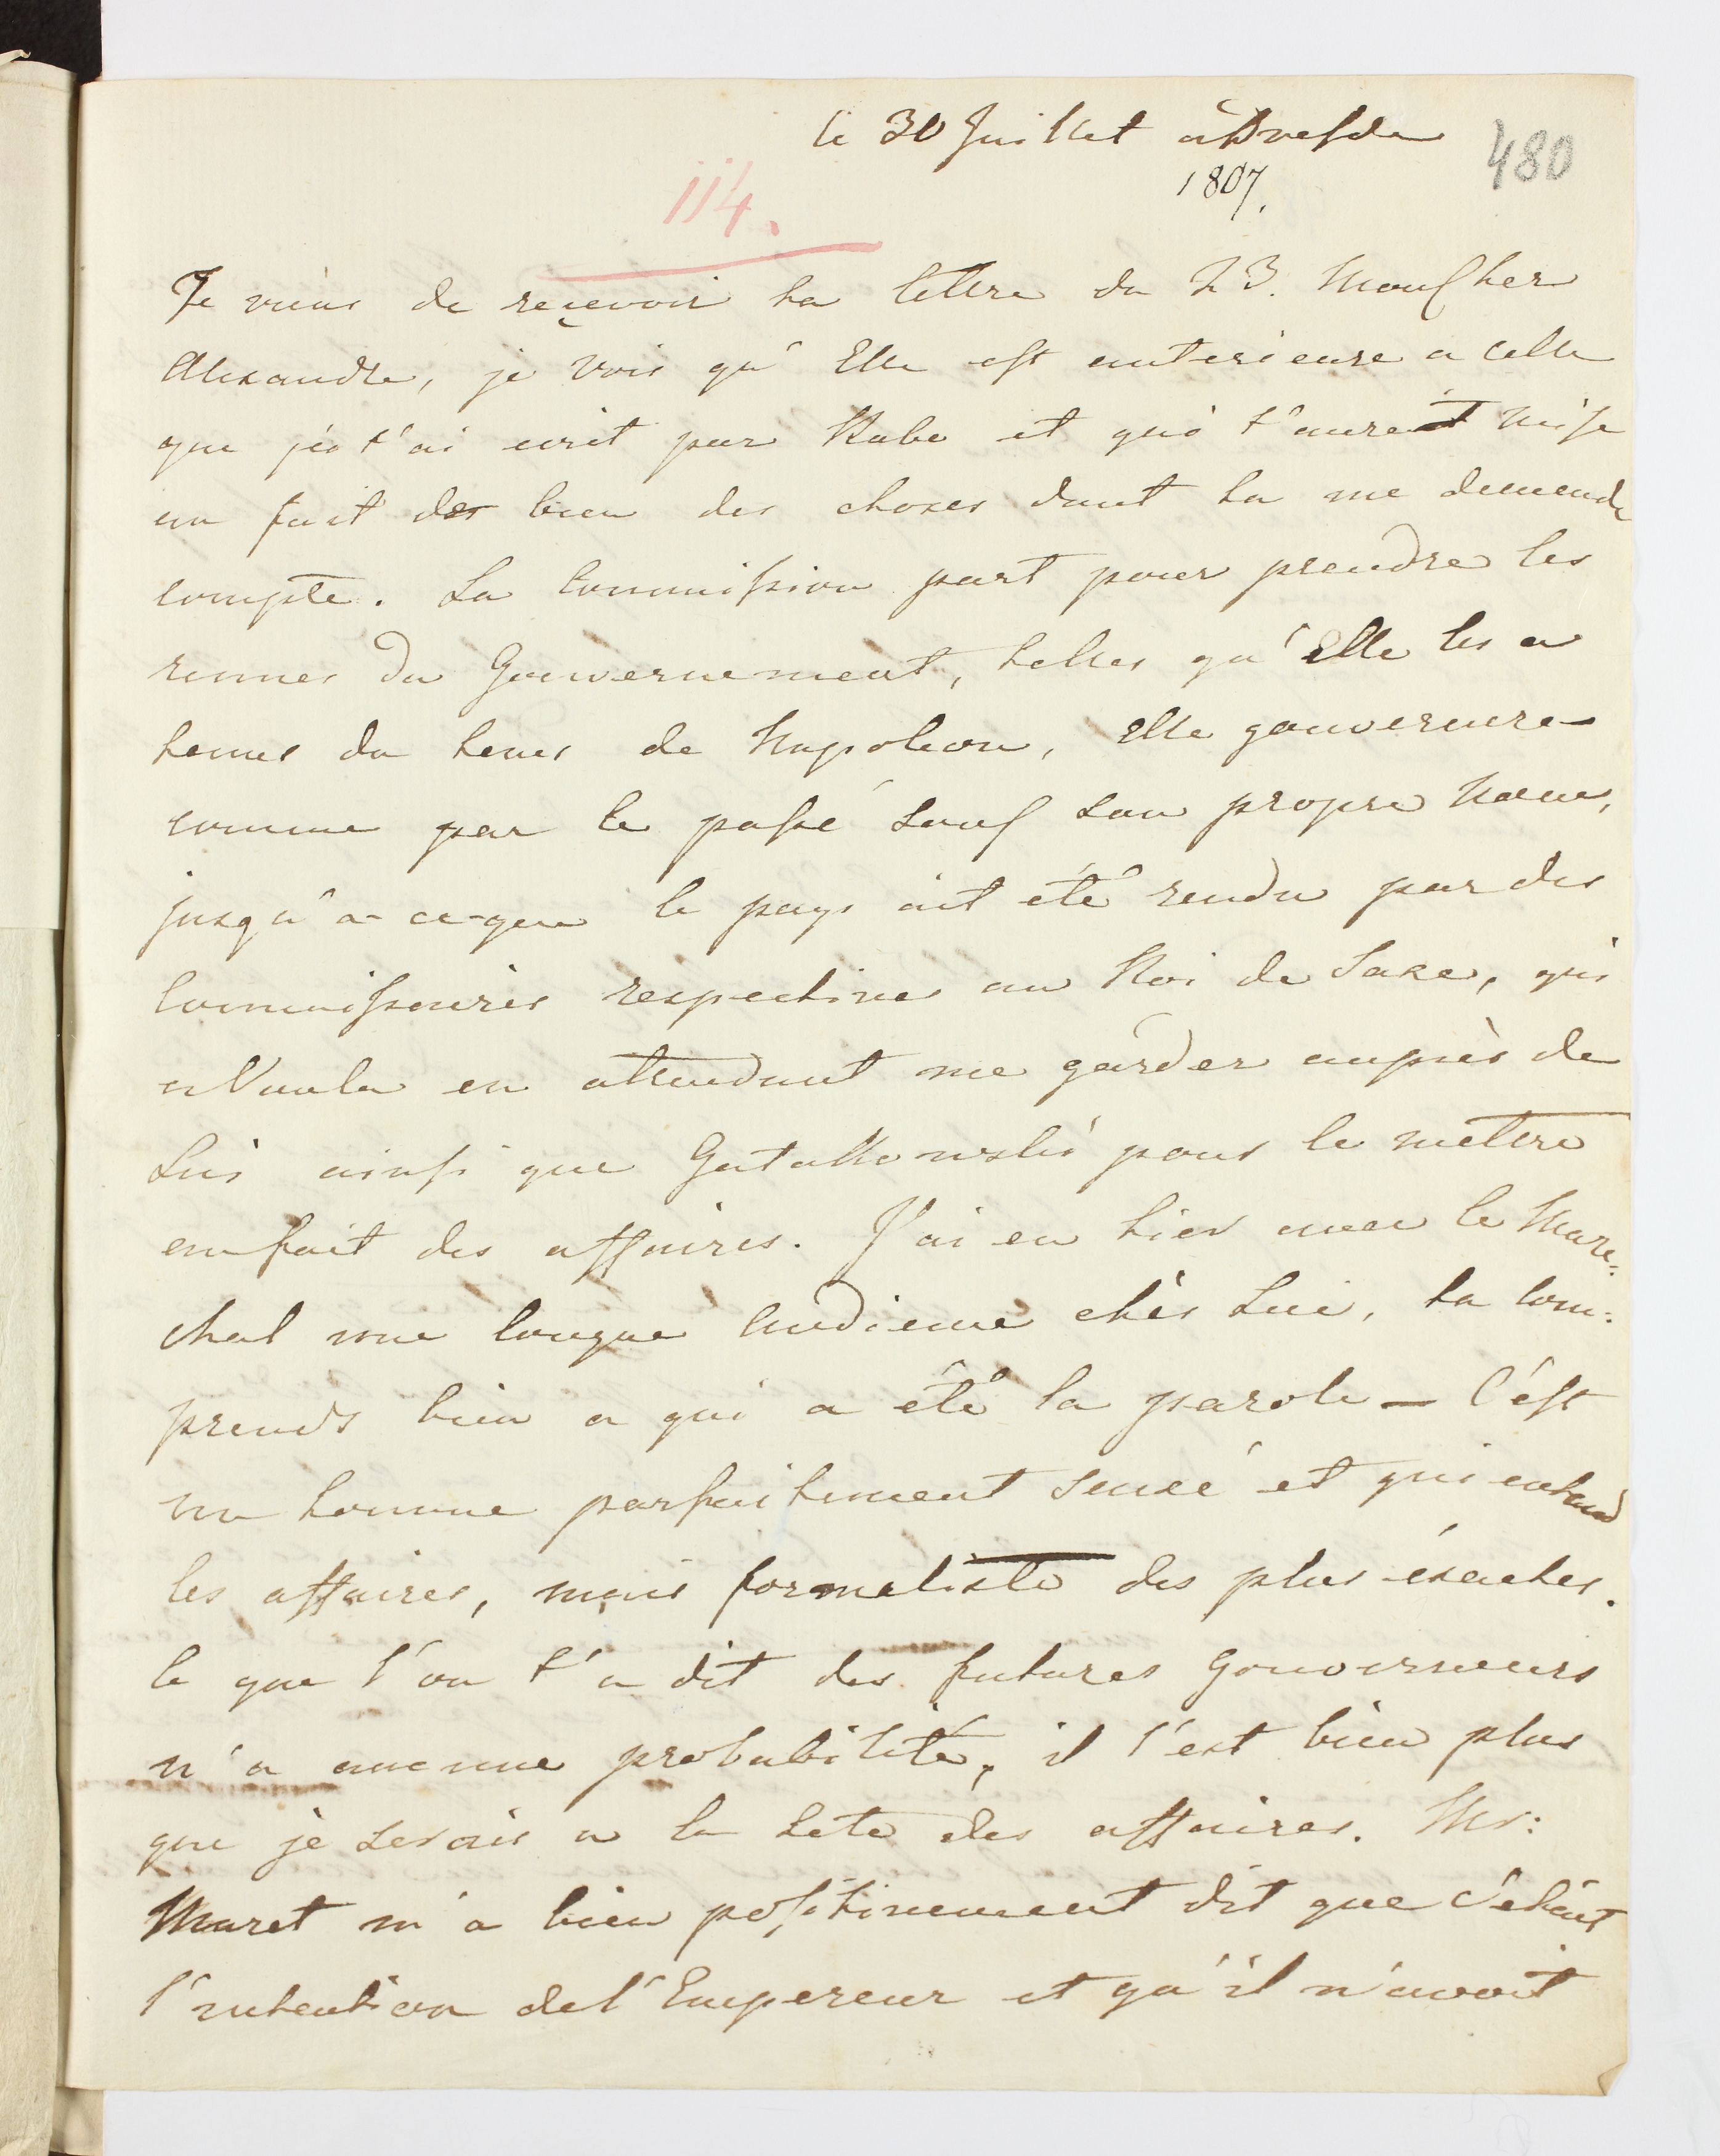 le 30 Juillet à Dresde
480
1807.
114.
Je viens de reçevoir ta lettre du 23. Mon cher
Alexandre, je vois qu'Elle est anterieure a celle
que je t'ai ecrit par et qui t'aurent mise
au fait des bien des choses dont tu me demende
compte. La Commission part pour prendre les
rennes du Gouvernement, telles qu'Elle les a
tenues du tems de Napoleon, Elle gouvernera
comme par le passé sous son propre Nom,
jusqu'a-ce-que le pays ait été rendu par des
Commissaires respectives au Roi de Saxe, qui
a Voulu en attendant me garder auprès de
Lui ainsi que Gutakowski pour le mettre
en fait des affaires. J'ai eu hier avec le Mare:
chal une longue Audience chès Lui, tu com:
prends bien a qui a été la parole – C'ést
un homme parfaitement sensé et qui entend
les affaires, mais formaliste des plus éxactes.
Ce que l'on t'a dit des futures Gouverneurs
n'a aucune probabilité, il l'est bien plus
que je serais a la tete des affaires. Mr:
Maret m'a bien positivement dit que c'etait
l'intention de l'Empereur et qu'il n'avoit